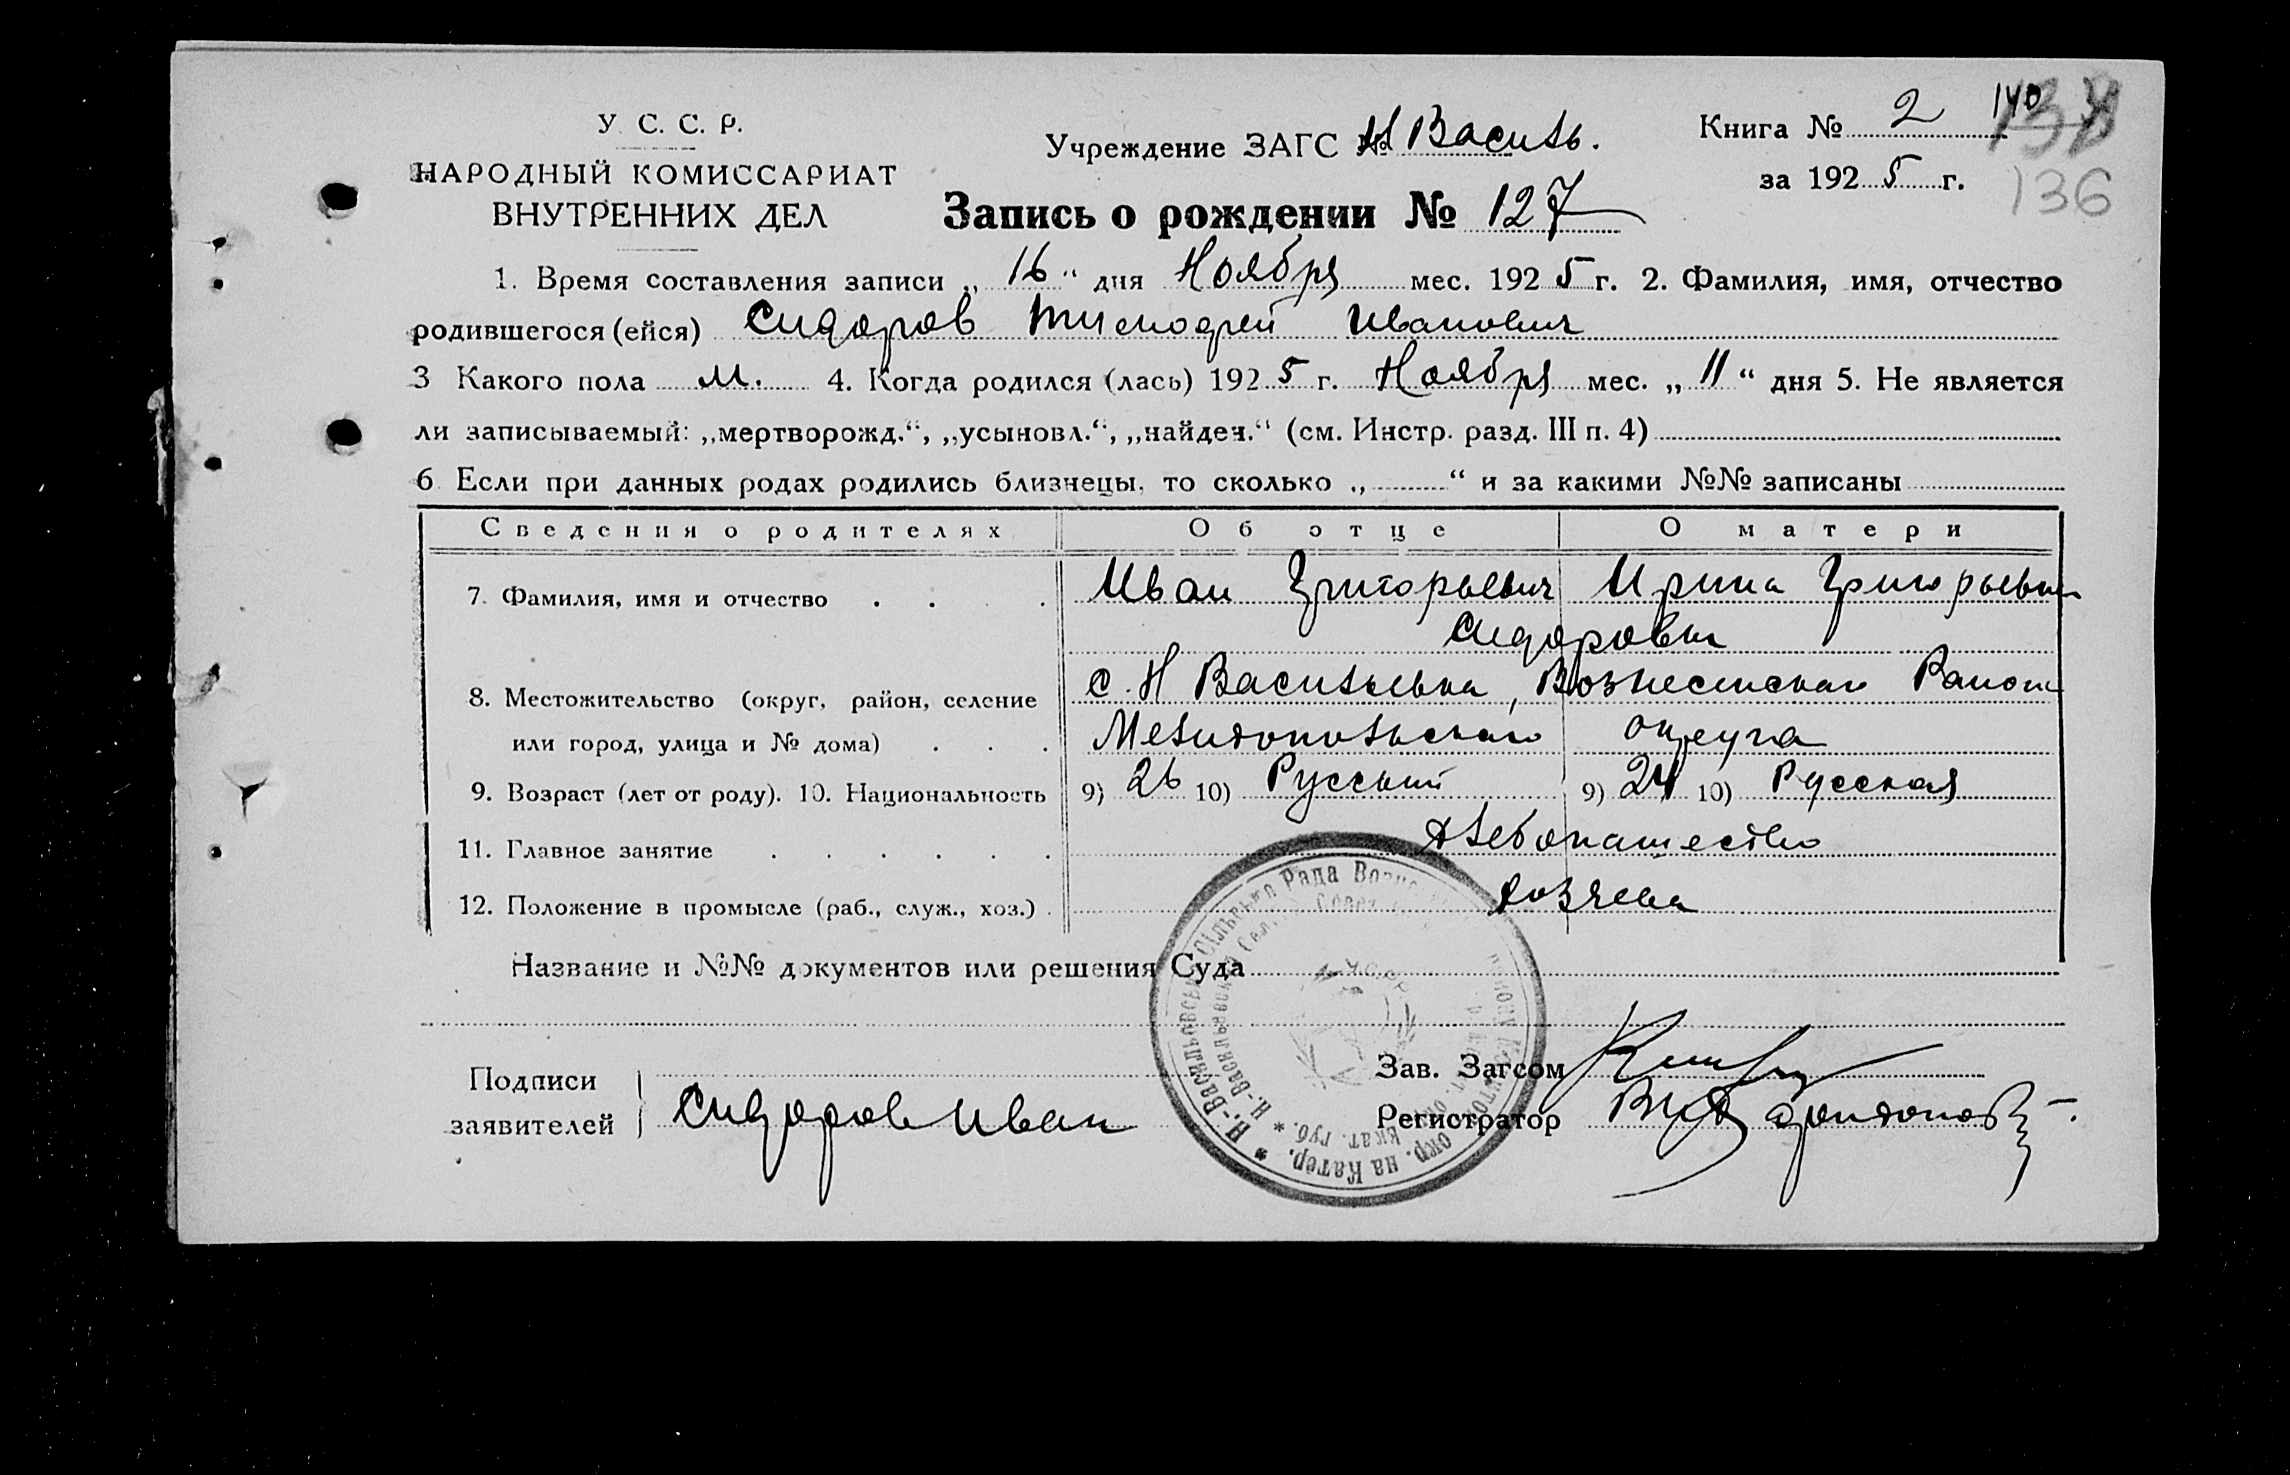 У. С. С. Р.
НАРОДНЫЙ КОМИССАРИАТ
ВНУТРЕННИХ ДЕЛ
Учреждение ЗАГС № Н Василь.
Книга № 2 140
за 1925 г. 136
Запись о рождении № 127
1. Время составления записи „ 16 “ дня Ноября мес. 1925 г. 2. Фамилия, имя, отчество
родившегося (ейся) Сидоров Тимофей Иванович
3 Какого пола м. 4. Когда родился (лась) 1925 г. Ноября мес. „ 11 “ дня 5. Не является
ли записываемый: „мертворожд.“, „усыновл.“, „найден.“ (см. Инстр. разд. III п. 4)
6. Если при данных родах родились близнецы, то сколько „ “ и за какими №№ записаны
Сведения о родителях Об отце О матери
7. Фамилия, имя и отчество . . . . Иван Григорьевич Ирина Григорьевна
Сидоровы
8. Местожительство (округ, район, селение с. Н Васильевка, Вознесенскаго Района
или город, улица и № дома) . . . Мелитопольскаго округа
9. Возраст (лет от роду). 10. Национальность 9) 26 10) Русский 9) 24 10) Русская
11. Главное занятие . . . . . . Хлебопашество
12. Положение в промысле (раб., служ., хоз.) . хозяева
Название и №№ документов или решения Суда
Подписи
заявителей
Сидоров Иван
Зав. Загсом
Регистратор
Н.-Васильовська Сільсько Рада
окр. на Катер.
Н.-Васильевско
Екат. губ.
У.С.С.Р.